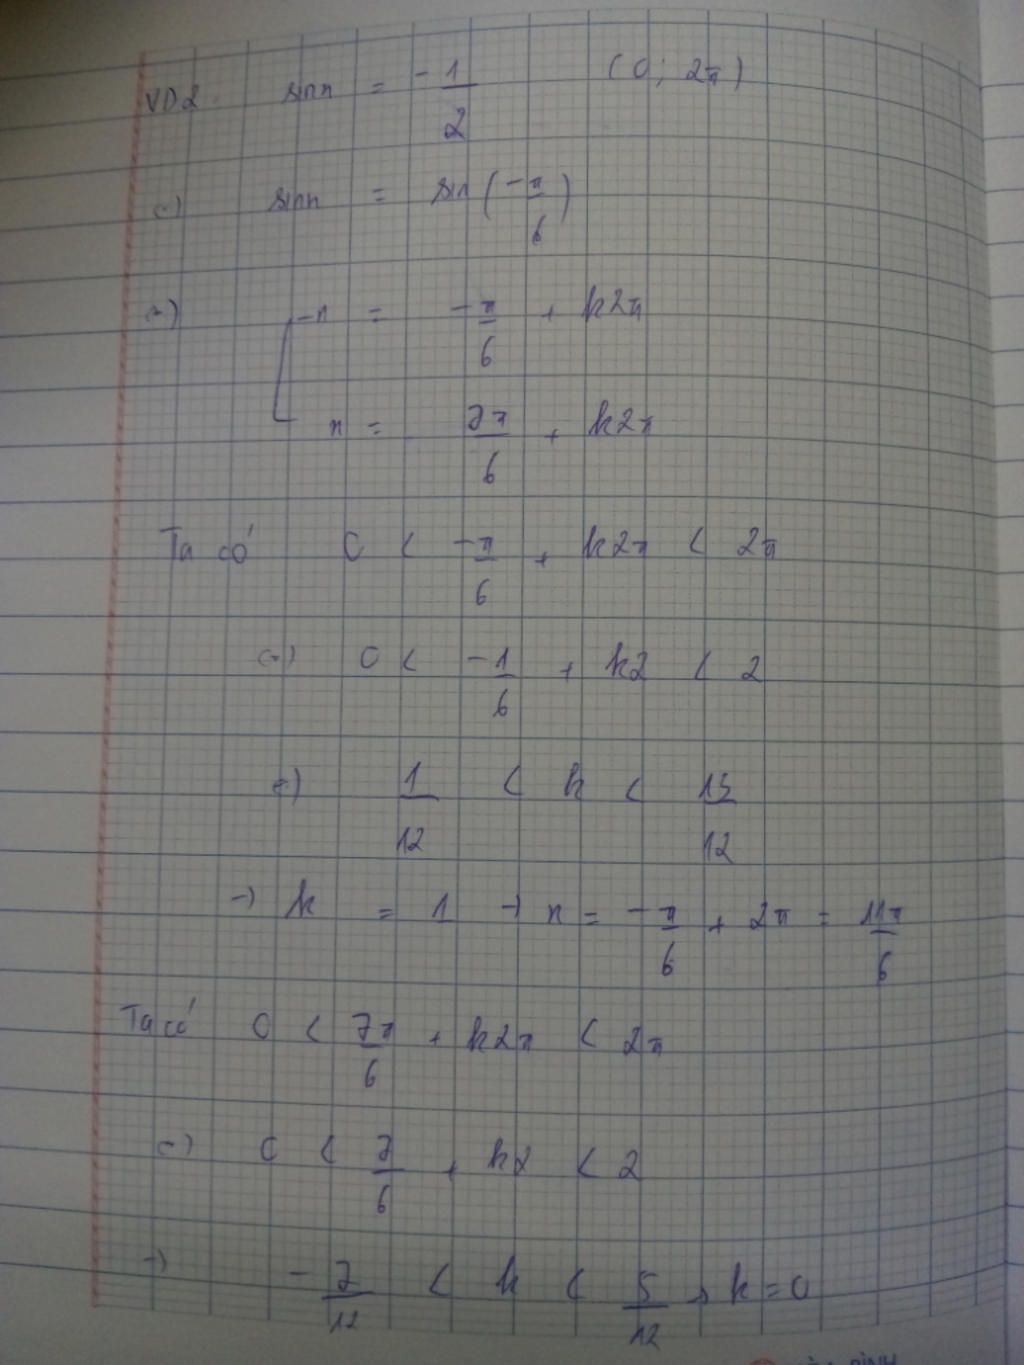 VD2. sinx = -1/2 (0; 2π)
(=) sinx = sin(-π/6)
(=) [ -x = -π/6 + k2π
x = 7π/6 + k2π
Ta có 0 < -π/6 + k2π < 2π
(=) 0 < -1/6 + k2 < 2
(=) 1/12 < k < 13/12
-) k = 1 -) x = -π/6 + 2π = 11π/6
Ta có 0 < 7π/6 + k2π < 2π
(=) 0 < 7/6 + k2 < 2
-) -7/12 < k < 5/12 → k = 0